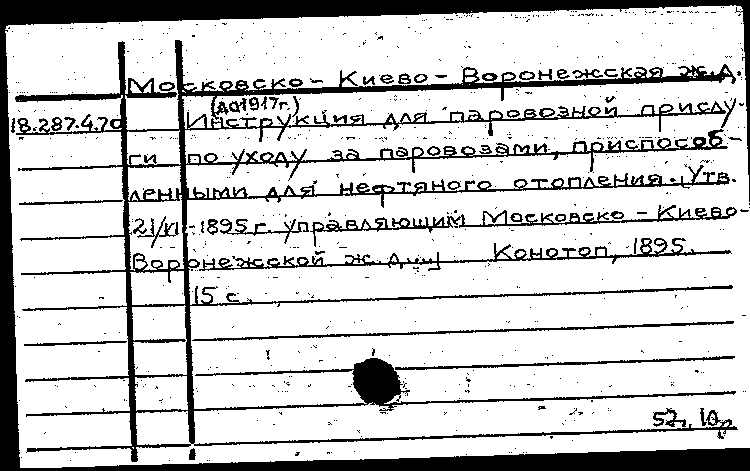 Московско - Киево - Воронежская ж.д.
(до 1917 г.)
18.287.4.70 Инструкция для паровозной прислу-
ги по уходу за паровозами, приспособ-
ленными для нефтяного отопления. [Утв.
21/VI-1895 г. управляющим Московско - Киево-
Воронежской ж.д.] Конотоп, 1895.
15 с.